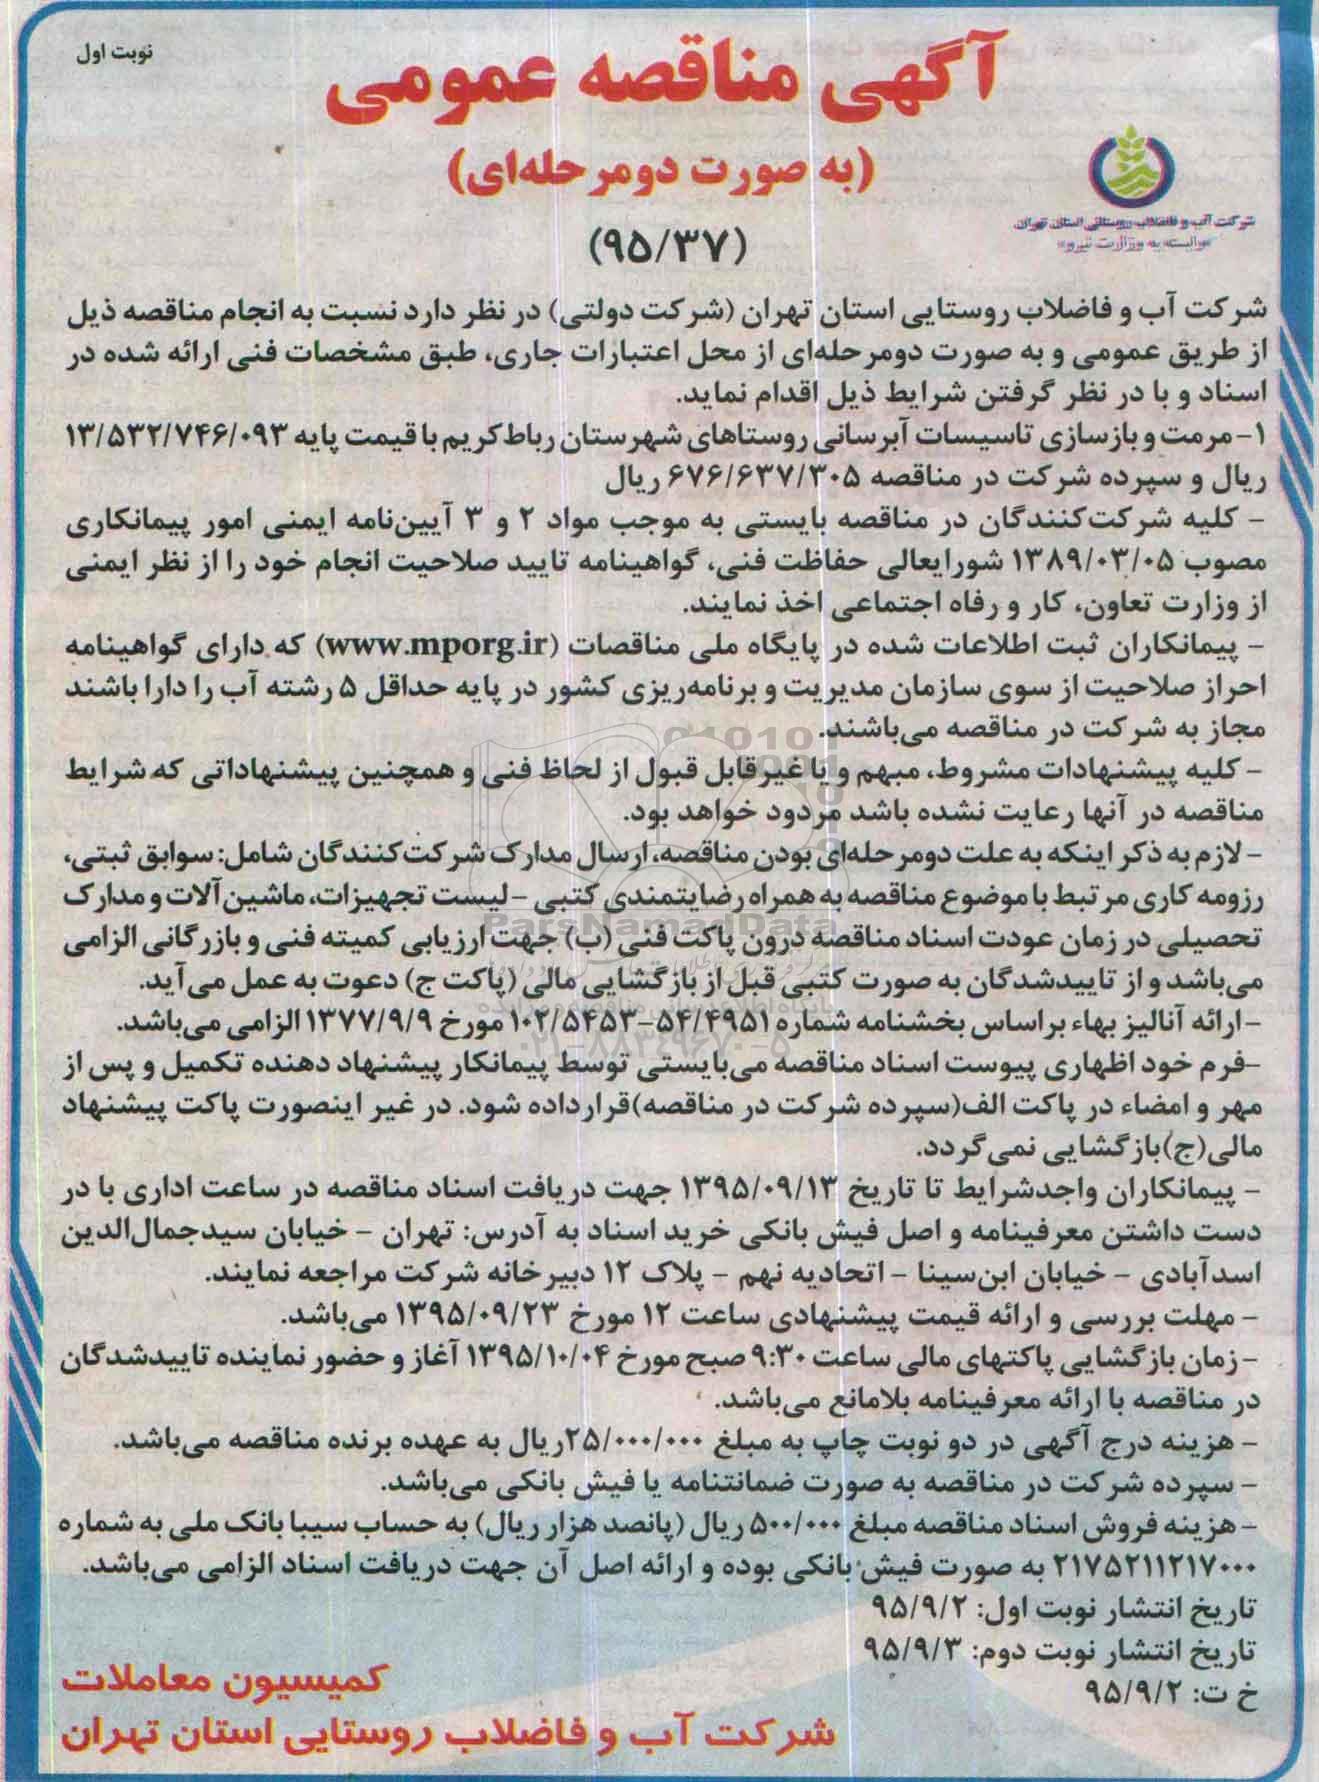 نوبت اول
آگهی مناقصه عمومی
(به صورت دومرحله‌ای)
شرکت آب و فاضلاب روستایی استان تهران
«وابسته به وزارت نیرو»
(۹۵/۳۷)
شرکت آب و فاضلاب روستایی استان تهران (شرکت دولتی) در نظر دارد نسبت به انجام مناقصه ذیل
از طریق عمومی و به صورت دومرحله‌ای از محل اعتبارات جاری، طبق مشخصات فنی ارائه شده در
اسناد و با در نظر گرفتن شرایط ذیل اقدام نماید.
۱- مرمت و بازسازی تاسیسات آبرسانی روستاهای شهرستان رباط‌کریم با قیمت پایه ۱۳/۵۳۲/۷۴۶/۰۹۳
ریال و سپرده شرکت در مناقصه ۶۷۶/۶۳۷/۳۰۵ ریال
- کلیه شرکت‌کنندگان در مناقصه بایستی به موجب مواد ۲ و ۳ آیین‌نامه ایمنی امور پیمانکاری
مصوب ۱۳۸۹/۰۳/۰۵ شورایعالی حفاظت فنی، گواهینامه تایید صلاحیت انجام خود را از نظر ایمنی
از وزارت تعاون، کار و رفاه اجتماعی اخذ نمایند.
- پیمانکاران ثبت اطلاعات شده در پایگاه ملی مناقصات (www.mporg.ir) که دارای گواهینامه
احراز صلاحیت از سوی سازمان مدیریت و برنامه‌ریزی کشور در پایه حداقل ۵ رشته آب را دارا باشند
مجاز به شرکت در مناقصه می‌باشند.
- کلیه پیشنهادات مشروط، مبهم و یا غیرقابل قبول از لحاظ فنی و همچنین پیشنهاداتی که شرایط
مناقصه در آنها رعایت نشده باشد مردود خواهد بود.
- لازم به ذکر اینکه به علت دومرحله‌ای بودن مناقصه، ارسال مدارک شرکت‌کنندگان شامل: سوابق ثبتی،
رزومه کاری مرتبط با موضوع مناقصه به همراه رضایتمندی کتبی - لیست تجهیزات، ماشین‌آلات و مدارک
تحصیلی در زمان عودت اسناد مناقصه درون پاکت فنی (ب) جهت ارزیابی کمیته فنی و بازرگانی الزامی
می‌باشد و از تاییدشدگان به صورت کتبی قبل از بازگشایی مالی (پاکت ج) دعوت به عمل می‌آید.
- ارائه آنالیز بهاء براساس بخشنامه شماره ۵۴/۴۹۵۱-۱۰۲/۵۴۵۳ مورخ ۱۳۷۷/۹/۹ الزامی می‌باشد.
- فرم خود اظهاری پیوست اسناد مناقصه می‌بایستی توسط پیمانکار پیشنهاد دهنده تکمیل و پس از
مهر و امضاء در پاکت الف (سپرده شرکت در مناقصه) قرارداده شود. در غیر اینصورت پاکت پیشنهاد
مالی (ج) بازگشایی نمی‌گردد.
- پیمانکاران واجدشرایط تا تاریخ ۱۳۹۵/۰۹/۱۳ جهت دریافت اسناد مناقصه در ساعت اداری با در
دست داشتن معرفینامه و اصل فیش بانکی خرید اسناد به آدرس: تهران - خیابان سیدجمال‌الدین
اسدآبادی - خیابان ابن‌سینا - اتحادیه نهم - پلاک ۱۲ دبیرخانه شرکت مراجعه نمایند.
- مهلت بررسی و ارائه قیمت پیشنهادی ساعت ۱۲ مورخ ۱۳۹۵/۰۹/۲۳ می‌باشد.
- زمان بازگشایی پاکتهای مالی ساعت ۹:۳۰ صبح مورخ ۱۳۹۵/۱۰/۰۴ آغاز و حضور نماینده تاییدشدگان
در مناقصه با ارائه معرفینامه بلامانع می‌باشد.
- هزینه درج آگهی در دو نوبت چاپ به مبلغ ۲۵/۰۰۰/۰۰۰ ریال به عهده برنده مناقصه می‌باشد.
- سپرده شرکت در مناقصه به صورت ضمانتنامه یا فیش بانکی می‌باشد.
- هزینه فروش اسناد مناقصه مبلغ ۵۰۰/۰۰۰ ریال (پانصد هزار ریال) به حساب سیبا بانک ملی به شماره
۲۱۷۵۲۱۱۲۱۷۰۰۰ به صورت فیش بانکی بوده و ارائه اصل آن جهت دریافت اسناد الزامی می‌باشد.
تاریخ انتشار نوبت اول: ۹۵/۹/۲
تاریخ انتشار نوبت دوم: ۹۵/۹/۳
خ ت: ۹۵/۹/۲
کمیسیون معاملات
شرکت آب و فاضلاب روستایی استان تهران
ParsNamadData
۰۲۱-۸۸۳۴۹۶۷۰-۵